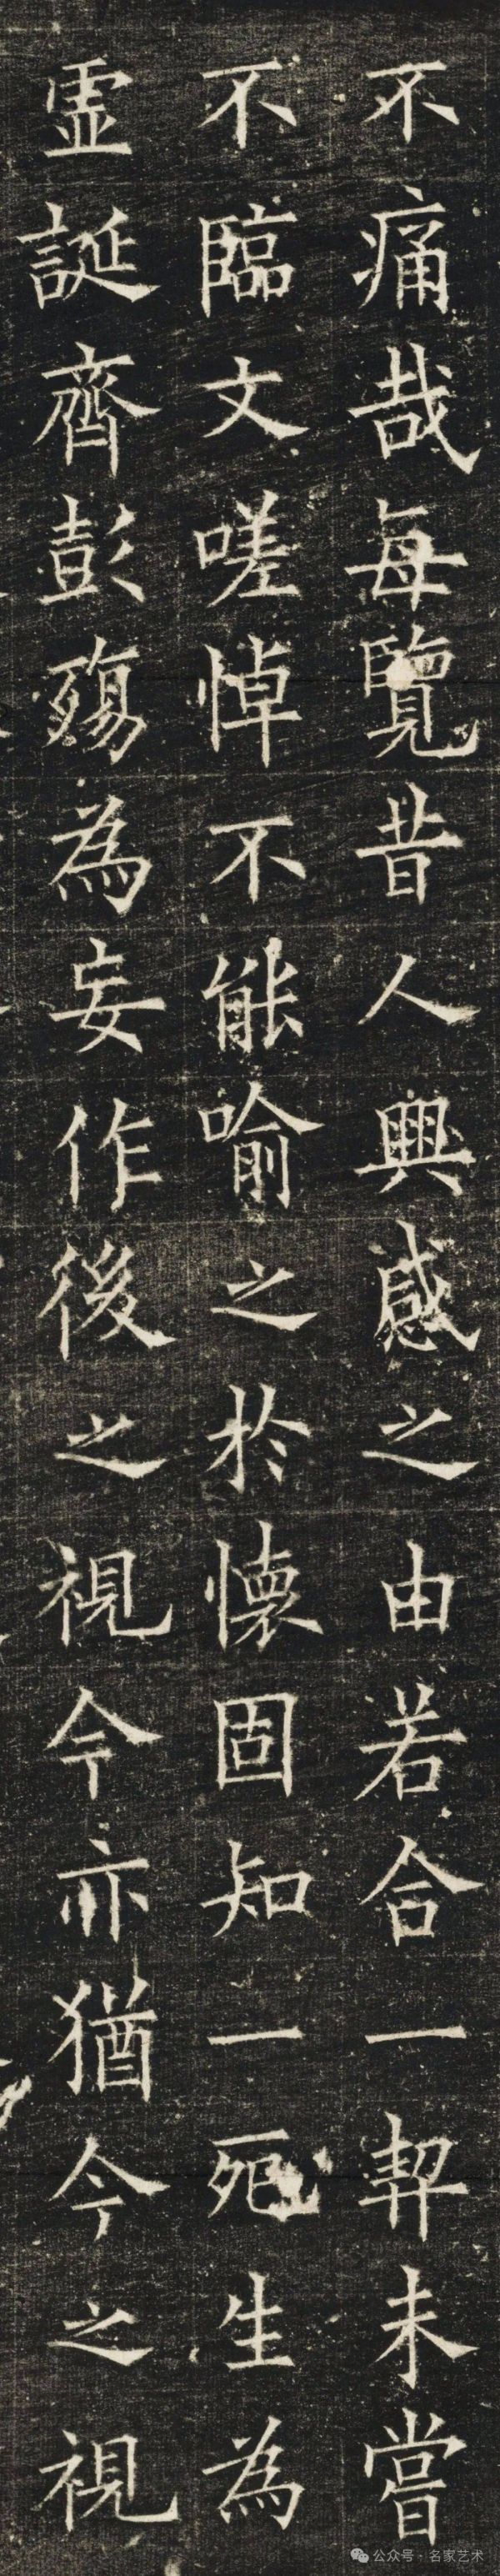 不痛哉每覽昔人興感之由若合一契未嘗
不臨文嗟悼不能喻之於懷固知一死生為
虛誕齊彭殤為妄作後之視今亦猶今之視
公众号 · 名家艺术